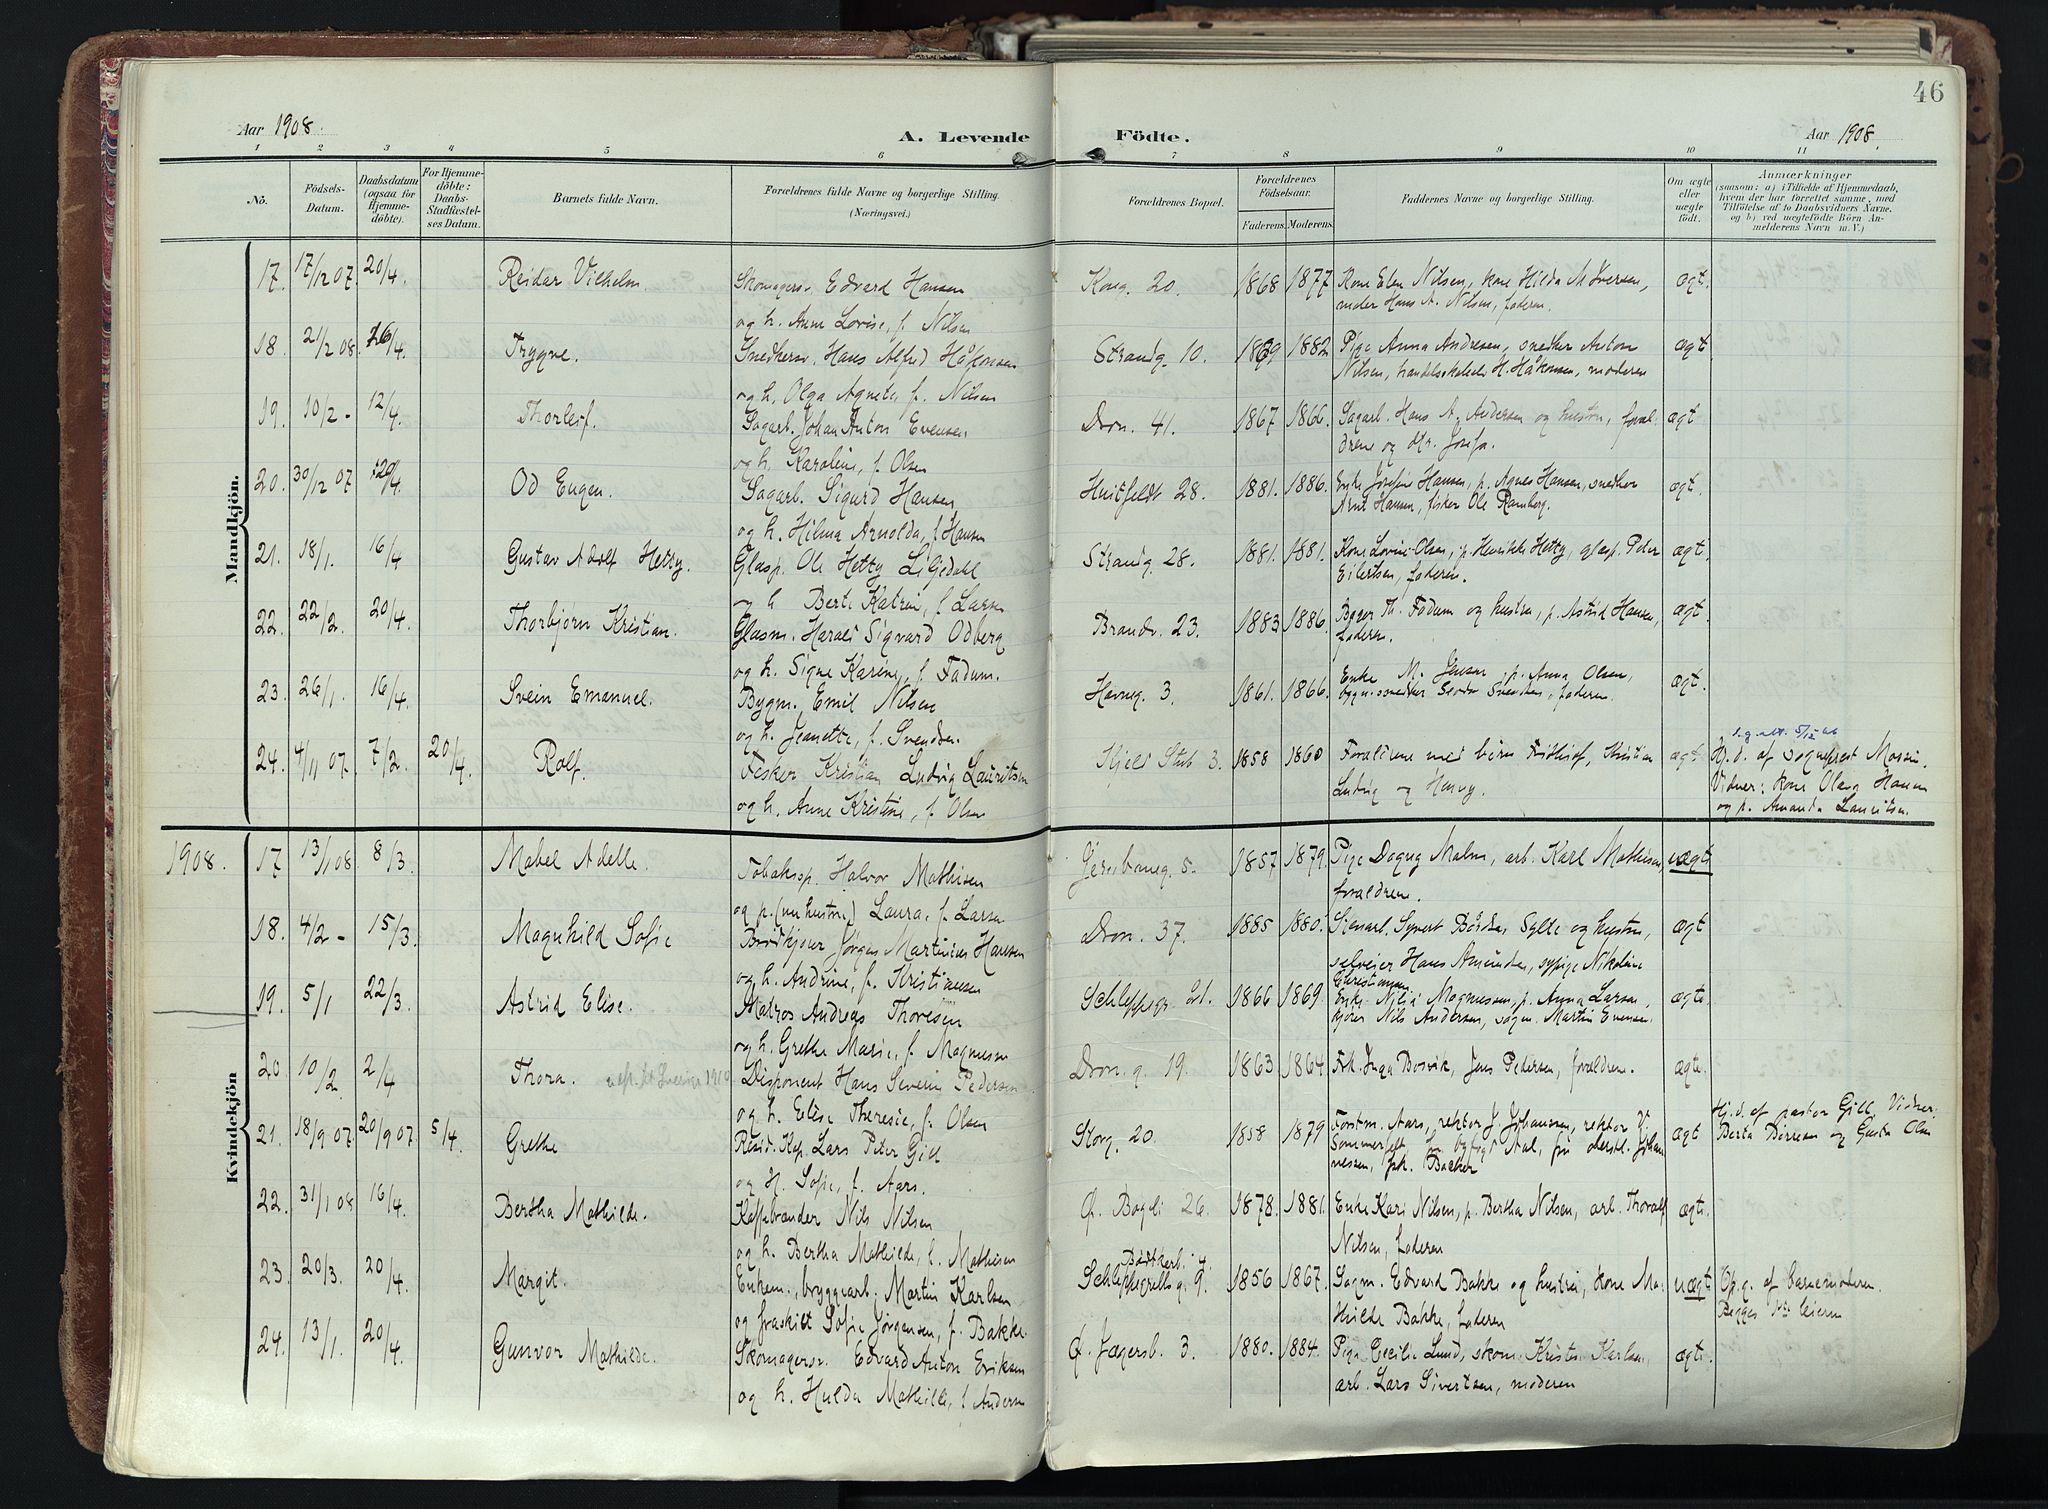 46
Aar 1908.
A. Levende Födte.
Aar 1908.
1 2 3 4 5 6 7 8 9 10 11
No.
Födsels-Datum.
Daabsdatum (ogsaa for Hjemme-döbte).
For Hjemme-döbte: Daabs-Stadfæstel-ses Datum.
Barnets fulde Navn.
Forældrenes fulde Navne og borgerlige Stilling. (Næringsvei.)
Forældrenes Bopæl.
Forældrenes Födselsaar.
Faderens. Moderens.
Faddernes Navne og borgerlige Stilling.
Om ægte eller uægte födt.
Anmærkninger
(saasom: a) i Tilfælde af Hjemmedaab,
hvem der har forrettet samme, med
Tilföielse af to Daabsvidners Navne.
og b) ved uægtefödte Börn An-
melderens Navn m. V.)
Mandkjön.
17. 17/12 07. 20/4. Reidar Vilhelm. Skomagersv. Edvard Hansen Kong. 20. 1868 1877 Kone Elen Nilsen, kone Hilda M. Iversen, ægt.
og h. Anne Lovise, f. Nilsen
18. 21/2 08. 26/4. Trygve. Snedkersv. Hans Alfred Håkonsen Strandg. 10. 1882 Pige Anna Andresen, snedker Anton ægt
og h. Olga Agnete, f. Nilsen Nilsen, H. Håkonsen, moderen
19. 10/2 - 12/4. Thorleif. Sagarb. Johan Anton Evensen Dron. 41. 1867 1866. Sagarb. Hans A. Andersen og hustru, foræl- ægt
og h. Karoline, f. Olsen drene og
20. 30/12 07 20/4. Od Eugen. Sagarb. Sigurd Hansen Huitfeldt 28. 1881. 1886. Enke Josefine Hansen, p. Agnes Hansen, snedker ægt.
og h. Hilma Arnolda, f. Hansen Arnt Hansen, fisker Ole Ramberg.
21. 18/1. 16/4 Gustav Adolf Hetty. Glasp. Ole Hetty Liljedahl Strandg. 28. 1881. 1881. Kone Lovise Olsen, p. Henrikke Hetty, glasp. Peter ægt.
og h Berte Katrine, f. Larsen Eilertsen, faderen.
22. 22/2. 20/4. Thorbjørn Kristian. Glasm. Harald Sigvard Odberg Brandv. 23. 1883 1886. Bager Th. Fadum og hustru, p. Astrid Hansen, ægt.
og h. Signe Karine, f. Fadum. faderen.
23. 26/1. 16/4. Svein Emanuel. Bygm. Emil Nilsen Havneg. 3. 1861. 1866. Enke M. Jensen, p. Anna Olsen, ægt.
og h. Jeanette, f. Svendsen. faderen.
24. 4/11 07. 7/2. 20/4. Rolf. Fisker Kristian Ludvig Lauritsen Kjeld Stub 3. 1858 1860 Forældrene med børn Fridthjof, Kristian ægt Hj. d. af sogneprest
og h. Anne Kristine, f. Olsen Ludvig og Henry. Vidner: kone Olava Hansen
og p. Amanda Lauritsen.
Kvindekjön
1908. 17 13/1 08. 8/3. Mabel Adelle. Tobaksp. Halvor Mathisen 5. 1857 1879. Pige Dagny Malm, arb. Karl Mathisen, uægte
og p. (nu hustru) Laura, f. Larsen forældrene.
18. 4/2 - 15/3. Magnhild Sofie Jørgen Martinius Hansen Dron. 37. 1885 1880. Stenarb. Syvert Sylte og hustru, ægt
og h. Andrine, f. Kristiansen selveier Hans Amundsen, sypige Nikoline
Christiansen.
19. 5/1 22/3. Astrid Elise. Matros Andreas Thoresen Schleppegr. 21. 1866 1869. Enke Magnussen, p. Anna Larsen, ægte.
og h. Grethe Marie, f. Magnussen Nils Andersen, Martin Evensen.
20 10/2 2/4 Thora. Disponent Hans Severin Pedersen Dron. g. 19. 1863 1864 Frk. Inga Bosvik, Jens Pedersen, forældrene. ægte.
og h. Elise Theresie, f. Olsen
21. 18/9 07. 20/9 07 5/4. Grethe Resid. Kap. Lars Peter Gill Storg. 20. 1858 1879 Forstm. Aars, rektor J. Johanssen, rektor V. ægt Hj. d. af pastor Gill. Vidner:
og H. Sofie, f. Aars. Sommerfelt, byfogd Aal, fru oberstl. Johan-
nessen, frk. Backer
Berta og Gusta Olsen
22. 31/1 08 16/4. Bertha Mathilde. Kaffebrænder Nils Nilsen Ø. Bageri 26. 1878. 1881. Enke Kari Nilsen, p. Bertha Nilsen, arb. Thoralf ægte.
og h. Bertha Mathilde, f. Mathisen Nilsen, faderen
23. 20/3. 20/4. Margit. Enkem., bryggearb. Martin Karlsen Schleppegrells g. 9. 1856 1867. Sagm. Edvard Bakke og hustru, kone Ma- uægt Op. g. af barnemoderen.
og fraskilt Sofie Jørgensen, f. Bakke thilde Bakke, faderen
24. 13/1. 20/4. Gunvor Mathilde. Skomagersv. Edvard Anton Eriksen Ø. Jegersb. 3. 1880. 1884. Pige Cecilie Lund, skom. Krist. Karlsen, ægt.
og h. Hulda Mathilde, f. Andersen arb. Lars Sivertsen, moderen